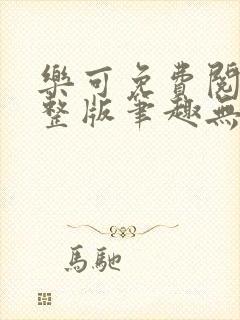 樂可免費閱
整版筆趣無
馬馳